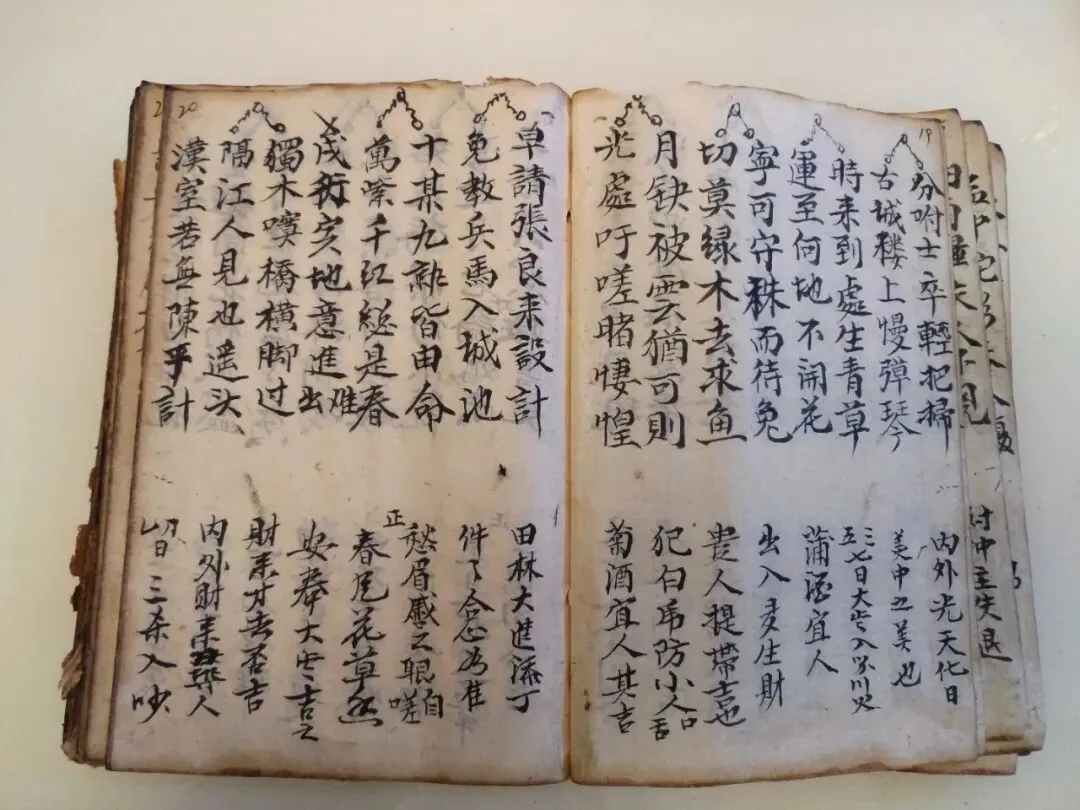 19
分吩士卒輕把掃
古城楼上慢彈琴
時来到處生青草
運至何地不開花
寧可守株而待兔
切莫緑木去求魚
月缺被雲猶可則
光處吁嗟睹悽惶
内外光天化日
美中之美也
三七日大吉入
五
蒲酒宜人
出入多生財
贵人提帶吉也
犯白虎防小人口舌
菊酒宜人其吉
20
早請張良来設計
免教兵馬入城池
十某九就皆由命
萬紫千江総是春
戌衍亥地意進出难
獨木嘆橋横脚过
隔江人見也遥头
漢室若無陳平計
田林大進添丁
件了合念为准
愁眉感之眼自嗟
正春花草
安奉大吉之
財来才去否吉
内外財来人
三杀入吵